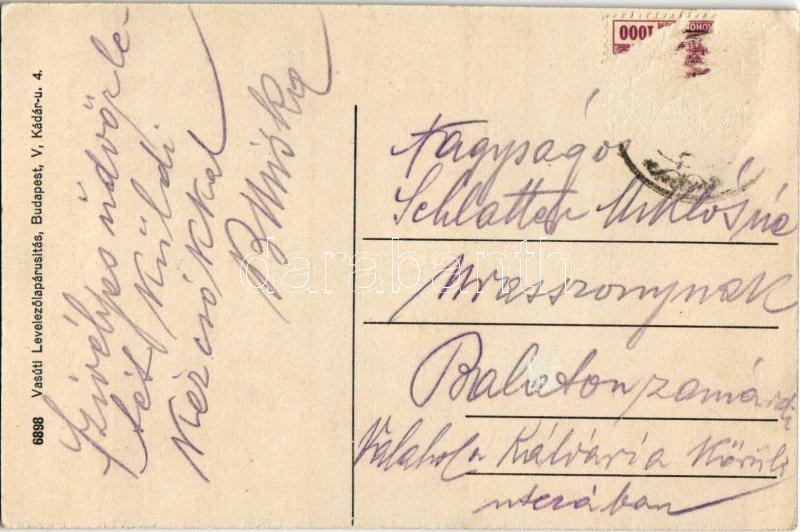 6898 Vasúti Levelezőlapárusitás, Budapest, V, Kádár-u. 4.
Szivélyes üdvözle
tét küldi
Kézcsókkal
B Miska
1000
KORO
Nagyságos
Schlatter Miklósné
Úrasszonynak
Balatonzamárdi
Valahol a Kálvária Körüli
utcában
darabanth